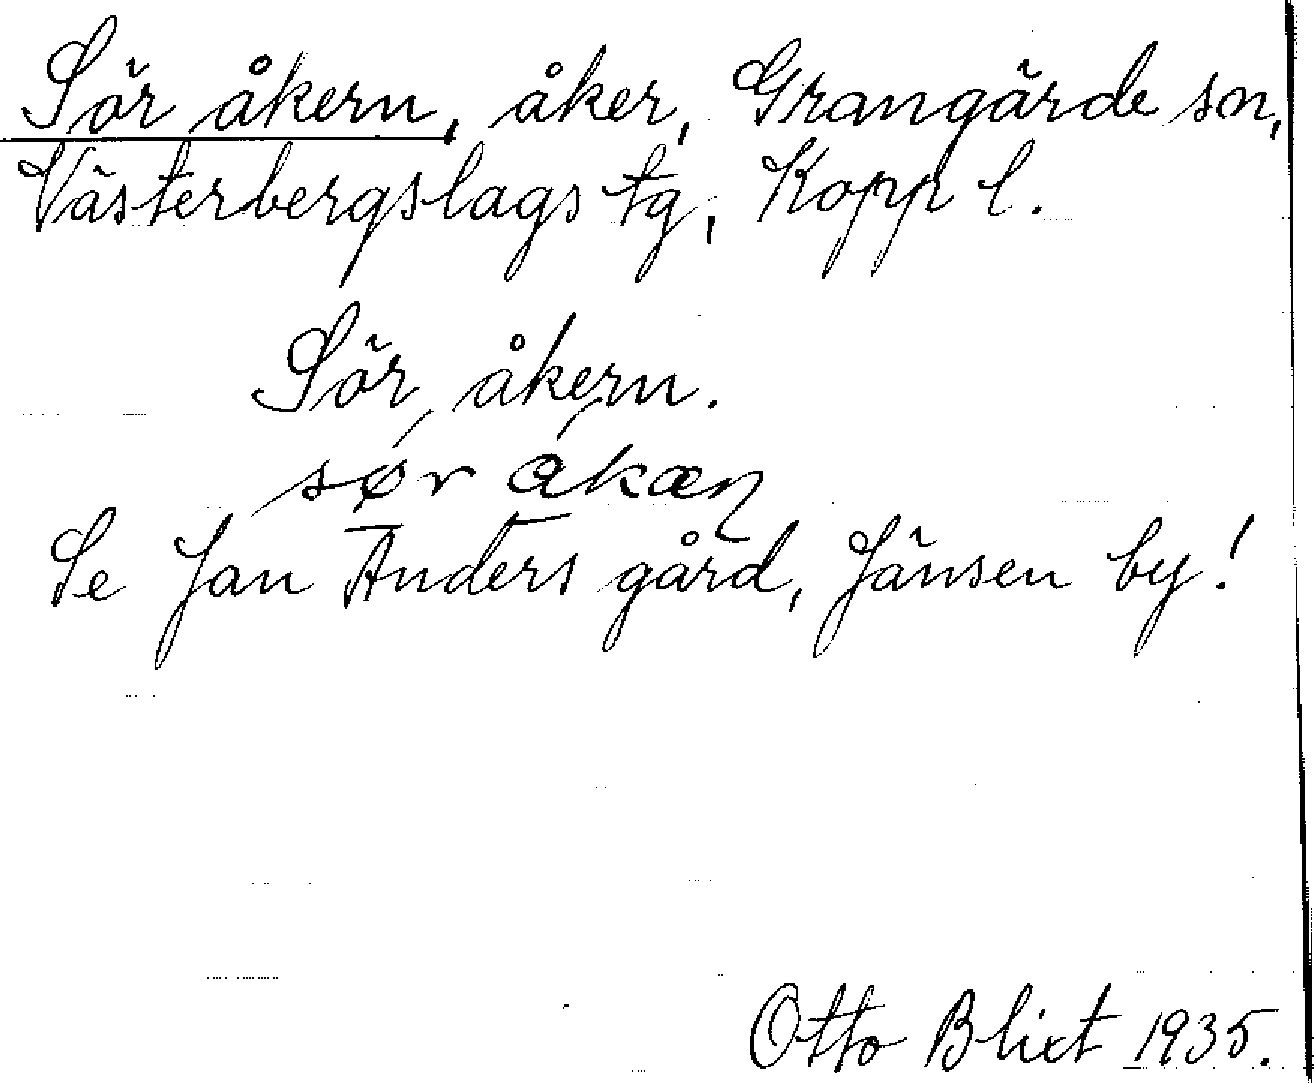 Sör åkern, åker, Grangärde sn,
Västerbergslags tg, Kopp l.
Sör, åkern.
sør åkæn
Se Jan Anders gård, Jänsen by!
Otto Blixt 1935.